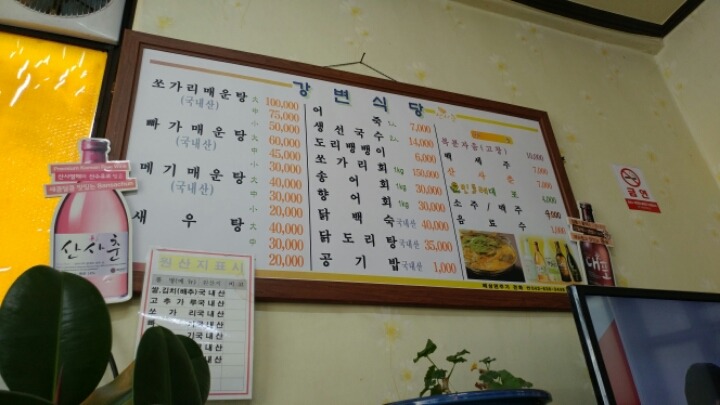 강변식당
쏘가리매운탕 대 100,000
(국내산) 중 75,000
소 50,000
빠가매운탕 대 60,000
(국내산) 중 45,000
소 30,000
메기매운탕 대 50,000
(국내산) 중 30,000
소 20,000
새우탕 대 40,000
중 30,000
20,000
어죽 1인 7,000
생선국수 2인 14,000
도리뱅뱅이 6,000
쏘가리회 1kg 150,000
송어회 1kg 30,000
향어회 1kg 30,000
닭백숙 국내산 40,000
닭도리탕 국내산 35,000
공기밥 국내산 1,000
복분자즙(고창) 10,000
백세주 7,000
산사춘 7,000
소주/맥주
음료수 1,000
Premium Korean Rose Wine
산사춘
금연
원산지표시
쌀,김치(배추)국내산
고추가루국내산
쏘가리국내산
빠 기국내산
기국내산
국내산